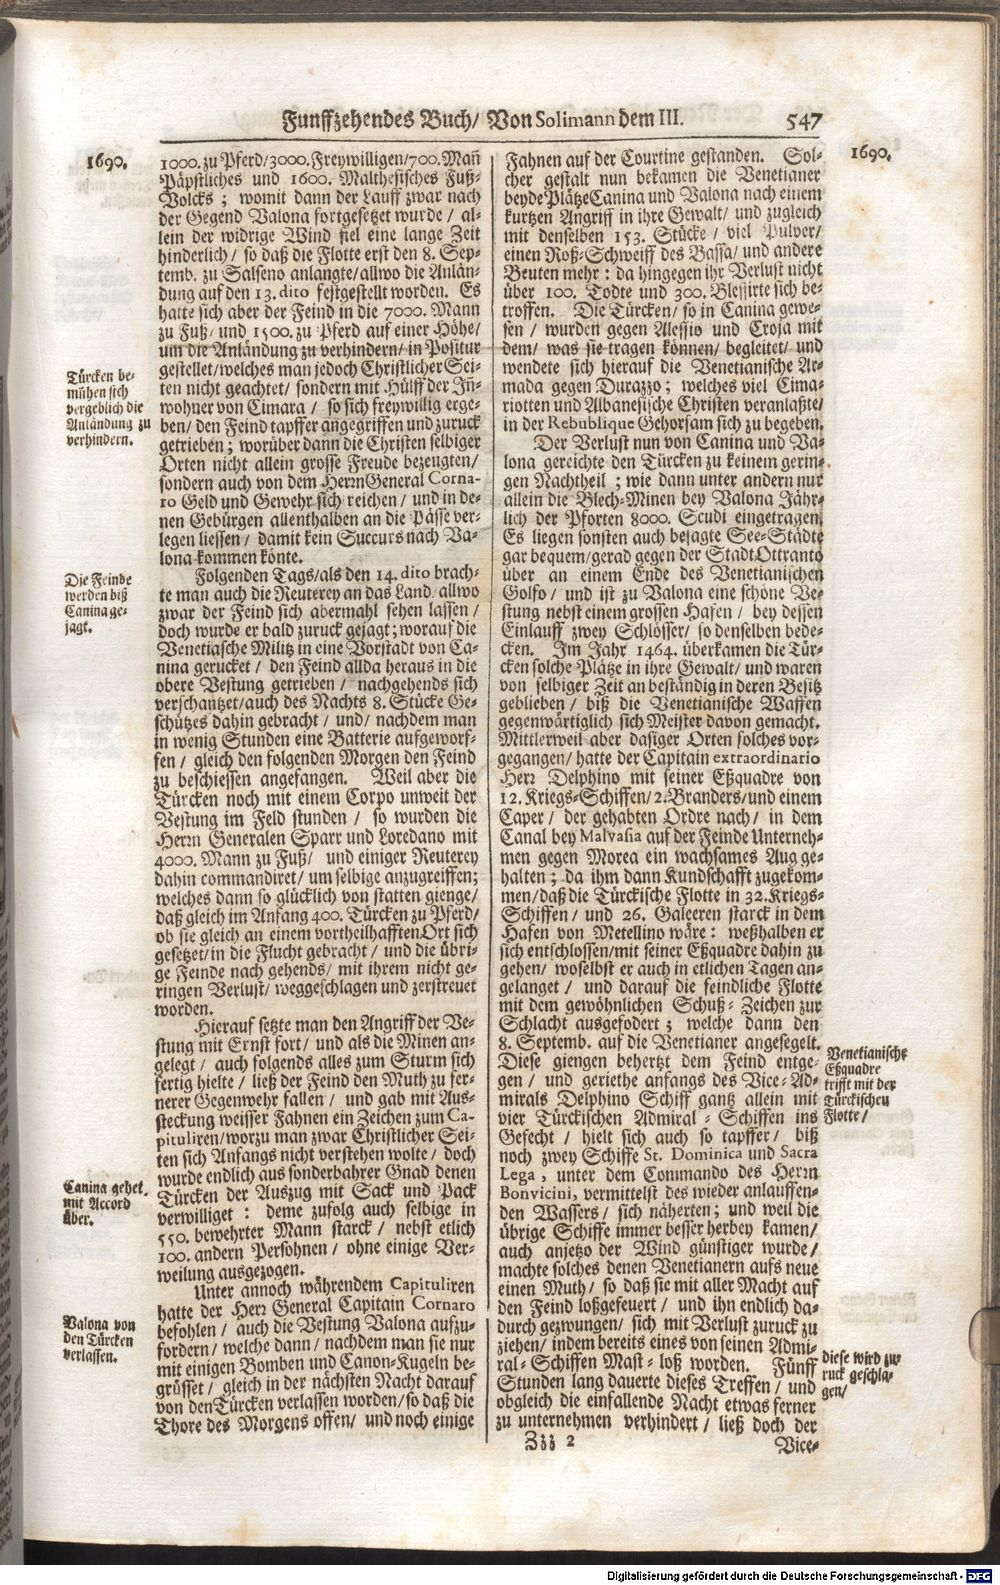 Funffzehendes Buch/ Von Solimann dem III. 547
1690.
1000. zu Pferd/3000. Freywilligen/700. Mañ
Päpstliches und 1600. Malthesisches Fuß-
Volcks; womit dann der Lauff zwar nach
der Gegend Valona fortgesetzt wurde/ al-
lein der widrige Wind fiel eine lange Zeit
hinderlich/ so daß die Flotte erst den 8. Sep-
temb. zu Salseno anlangte/allwo die Anlän-
dung auf den 13. dito festgestellt worden. Es
hatte sich aber der Feind in die 7000. Mann
zu Fuß/ und 1500. zu Pferd auf einer Höhe/
um die Anländung zu verhindern/ in Positur
gestellet/welches man jedoch Christlicher Sei-
ten nicht geachtet/ sondern mit Hülff der Jñ-
wohner von Cimara/ so sich freywillig erge-
ben/ den Feind tapffer angegriffen und zuruck
getrieben; worüber dann die Christen selbiger
Orten nicht allein grosse Freude bezeugten/
sondern auch von dem Herrn General Corna-
ro Geld und Gewehr sich reichen/ und in de-
nen Gebürgen allenthalben an die Pässe ver-
legen liessen/ damit kein Succurs nach Va-
lona kommen könte.
Türcken be-
mühen sich
vergeblich die
Anländung zu
verhindern.
Folgenden Tags/als den 14. dito brach-
te man auch die Reuterey an das Land/ allwo
zwar der Feind sich abermahl sehen lassen/
doch wurde er bald zuruck gejagt; worauf die
Venetiasche Militz in eine Vorstadt von Ca-
nina gerucket/ den Feind allda heraus in die
obere Vestung getrieben/ nachgehends sich
verschantzet/auch des Nachts 8. Stücke Ge-
schützes dahin gebracht/ und/ nachdem man
in wenig Stunden eine Batterie aufgeworf-
fen/ gleich den folgenden Morgen den Feind
zu beschiessen angefangen. Weil aber die
Türcken noch mit einem Corpo unweit der
Vestung im Feld stunden/ so wurden die
Herrn Generalen Sparr und Loredano mit
4000. Mann zu Fuß/ und einiger Reuterey
dahin commandiret/ um selbige anzugreiffen;
welches dann so glücklich von statten gienge/
daß gleich im Anfang 400. Türcken zu Pferd/
ob sie gleich an einem vortheilhafften Ort sich
gesetzet/in die Flucht gebracht/ und die übri-
ge Feinde nach gehends/ mit ihrem nicht ge-
ringen Verlust/ weggeschlagen und zerstreuet
worden.
Die Feinde
werden biß
Canina ge-
jagt.
Hierauf setzte man den Angriff der Ve-
stung mit Ernst fort/ und als die Minen an-
gelegt/ auch folgends alles zum Sturm sich
fertig hielte/ ließ der Feind den Muth zu fer-
nerer Gegenwehr fallen/ und gab mit Aus-
steckung weisser Fahnen ein Zeichen zum Ca-
pituliren/worzu man zwar Christlicher Sei-
ten sich Anfangs nicht verstehen wolte/ doch
wurde endlich aus sonderbahrer Gnad denen
Türcken der Auszug mit Sack und Pack
verwilliget: deme zufolg auch selbige in
550. bewehrter Mann starck/ nebst etlich
100. andern Persohnen/ ohne einige Ver-
weilung ausgezogen.
Canina gehet
mit Accord
über.
Unter annoch währendem Capituliren
hatte der Herr General Capitain Cornaro
befohlen/ auch die Vestung Valona aufzu-
fordern/ welche dann/ nachdem man sie nur
mit einigen Bomben und Canon-Kugeln be-
grüsset/ gleich in der nächsten Nacht darauf
von den Türcken verlassen worden/so daß die
Thore des Morgens offen/ und noch einige
Valona von
den Türcken
verlassen.
1690.
Fahnen auf der Courtine gestanden. Sol-
cher gestalt nun bekamen die Venetianer
beyde Plätze Canina und Valona nach einem
kurtzen Angriff in ihre Gewalt/ und zugleich
mit denselben 153. Stücke/ viel Pulver/
einen Roß-Schweiff des Bassa/ und andere
Beuten mehr: da hingegen ihr Verlust nicht
über 100. Todte und 300. Blessirte sich be-
troffen. Die Türcken/ so in Canina gewe-
sen/ wurden gegen Alessio und Croja mit
dem/ was sie tragen können/ begleitet/ und
wendete sich hierauf die Venetianische Ar-
mada gegen Durazzo; welches viel Cima-
riotten und Albanesische Christen veranlaßte/
in der Rebublique Gehorsam sich zu begeben.
Der Verlust nun von Canina und Va-
lona gereichte den Türcken zu keinem gerin-
gen Nachtheil; wie dann unter andern nur
allein die Blech-Minen bey Valona Jähr-
lich der Pforten 8000. Scudi eingetragen.
Es liegen sonsten auch besagte See-Städte
gar bequem/gerad gegen der Stadt Ottranto
über an einem Ende des Venetianischen
Golfo/ und ist zu Valona eine schöne Ve-
stung nebst einem grossen Hafen/ bey dessen
Einlauff zwey Schlösser/ so denselben bede-
cken. Im Jahr 1464. überkamen die Tür-
cken solche Plätze in ihre Gewalt/ und waren
von selbiger Zeit an beständig in deren Besitz
geblieben/ biß die Venetianische Waffen
gegenwärtiglich sich Meister davon gemacht.
Mittlerweil aber dasiger Orten solches vor-
gegangen/ hatte der Capitain extraordinario
Herr Delphino mit seiner Eßquadre von
12. Kriegs-Schiffen/2. Branders/und einem
Caper/ der gehabten Ordre nach/ in dem
Canal bey Malvasia auf der Feinde Unterneh-
men gegen Morea ein wachsames Aug ge-
halten; da ihm dann Kundschafft zugekom-
men/daß die Türckische Flotte in 32. Kriegs-
Schiffen/ und 26. Galeeren starck in dem
Hafen von Metellino wäre: weßhalben er
sich entschlossen/mit seiner Eßquadre dahin zu
gehen/ woselbst er auch in etlichen Tagen an-
gelanget/ und darauf die feindliche Flotte
mit dem gewöhnlichen Schuß-Zeichen zur
Schlacht ausgefodert; welche dann den
8. Septemb. auf die Venetianer angesegelt.
Diese giengen behertzt dem Feind entge-
gen/ und geriethe anfangs des Vice-Ad-
mirals Delphino Schiff gantz allein mit
vier Türckischen Admiral-Schiffen ins
Gefecht/ hielt sich auch so tapffer/ biß
noch zwey Schiffe St. Dominica und Sacra
Lega, unter dem Commando des Herrn
Bonvicini, vermittelst des wieder anlauffen-
den Wassers/ sich näherten; und weil die
übrige Schiffe immer besser herbey kamen/
auch anjetzo der Wind günstiger wurde/
machte solches denen Venetianern aufs neue
einen Muth/ so daß sie mit aller Macht auf
den Feind loßgefeuert/ und ihn endlich da-
durch gezwungen/ sich mit Verlust zuruck zu
ziehen/ indem bereits eines von seinen Admi-
ral-Schiffen Mast-loß worden. Fünff
Stunden lang dauerte dieses Treffen/ und
obgleich die einfallende Nacht etwas ferner
zu unternehmen verhindert/ ließ doch der
Venetianische
Eßquadre
trifft mit der
Türckischen
Flotte/
diese wird zu-
ruck geschla-
gen/
Zzz 2
Vice-
Digitalisierung gefördert durch die Deutsche Forschungsgemeinschaft - DFG